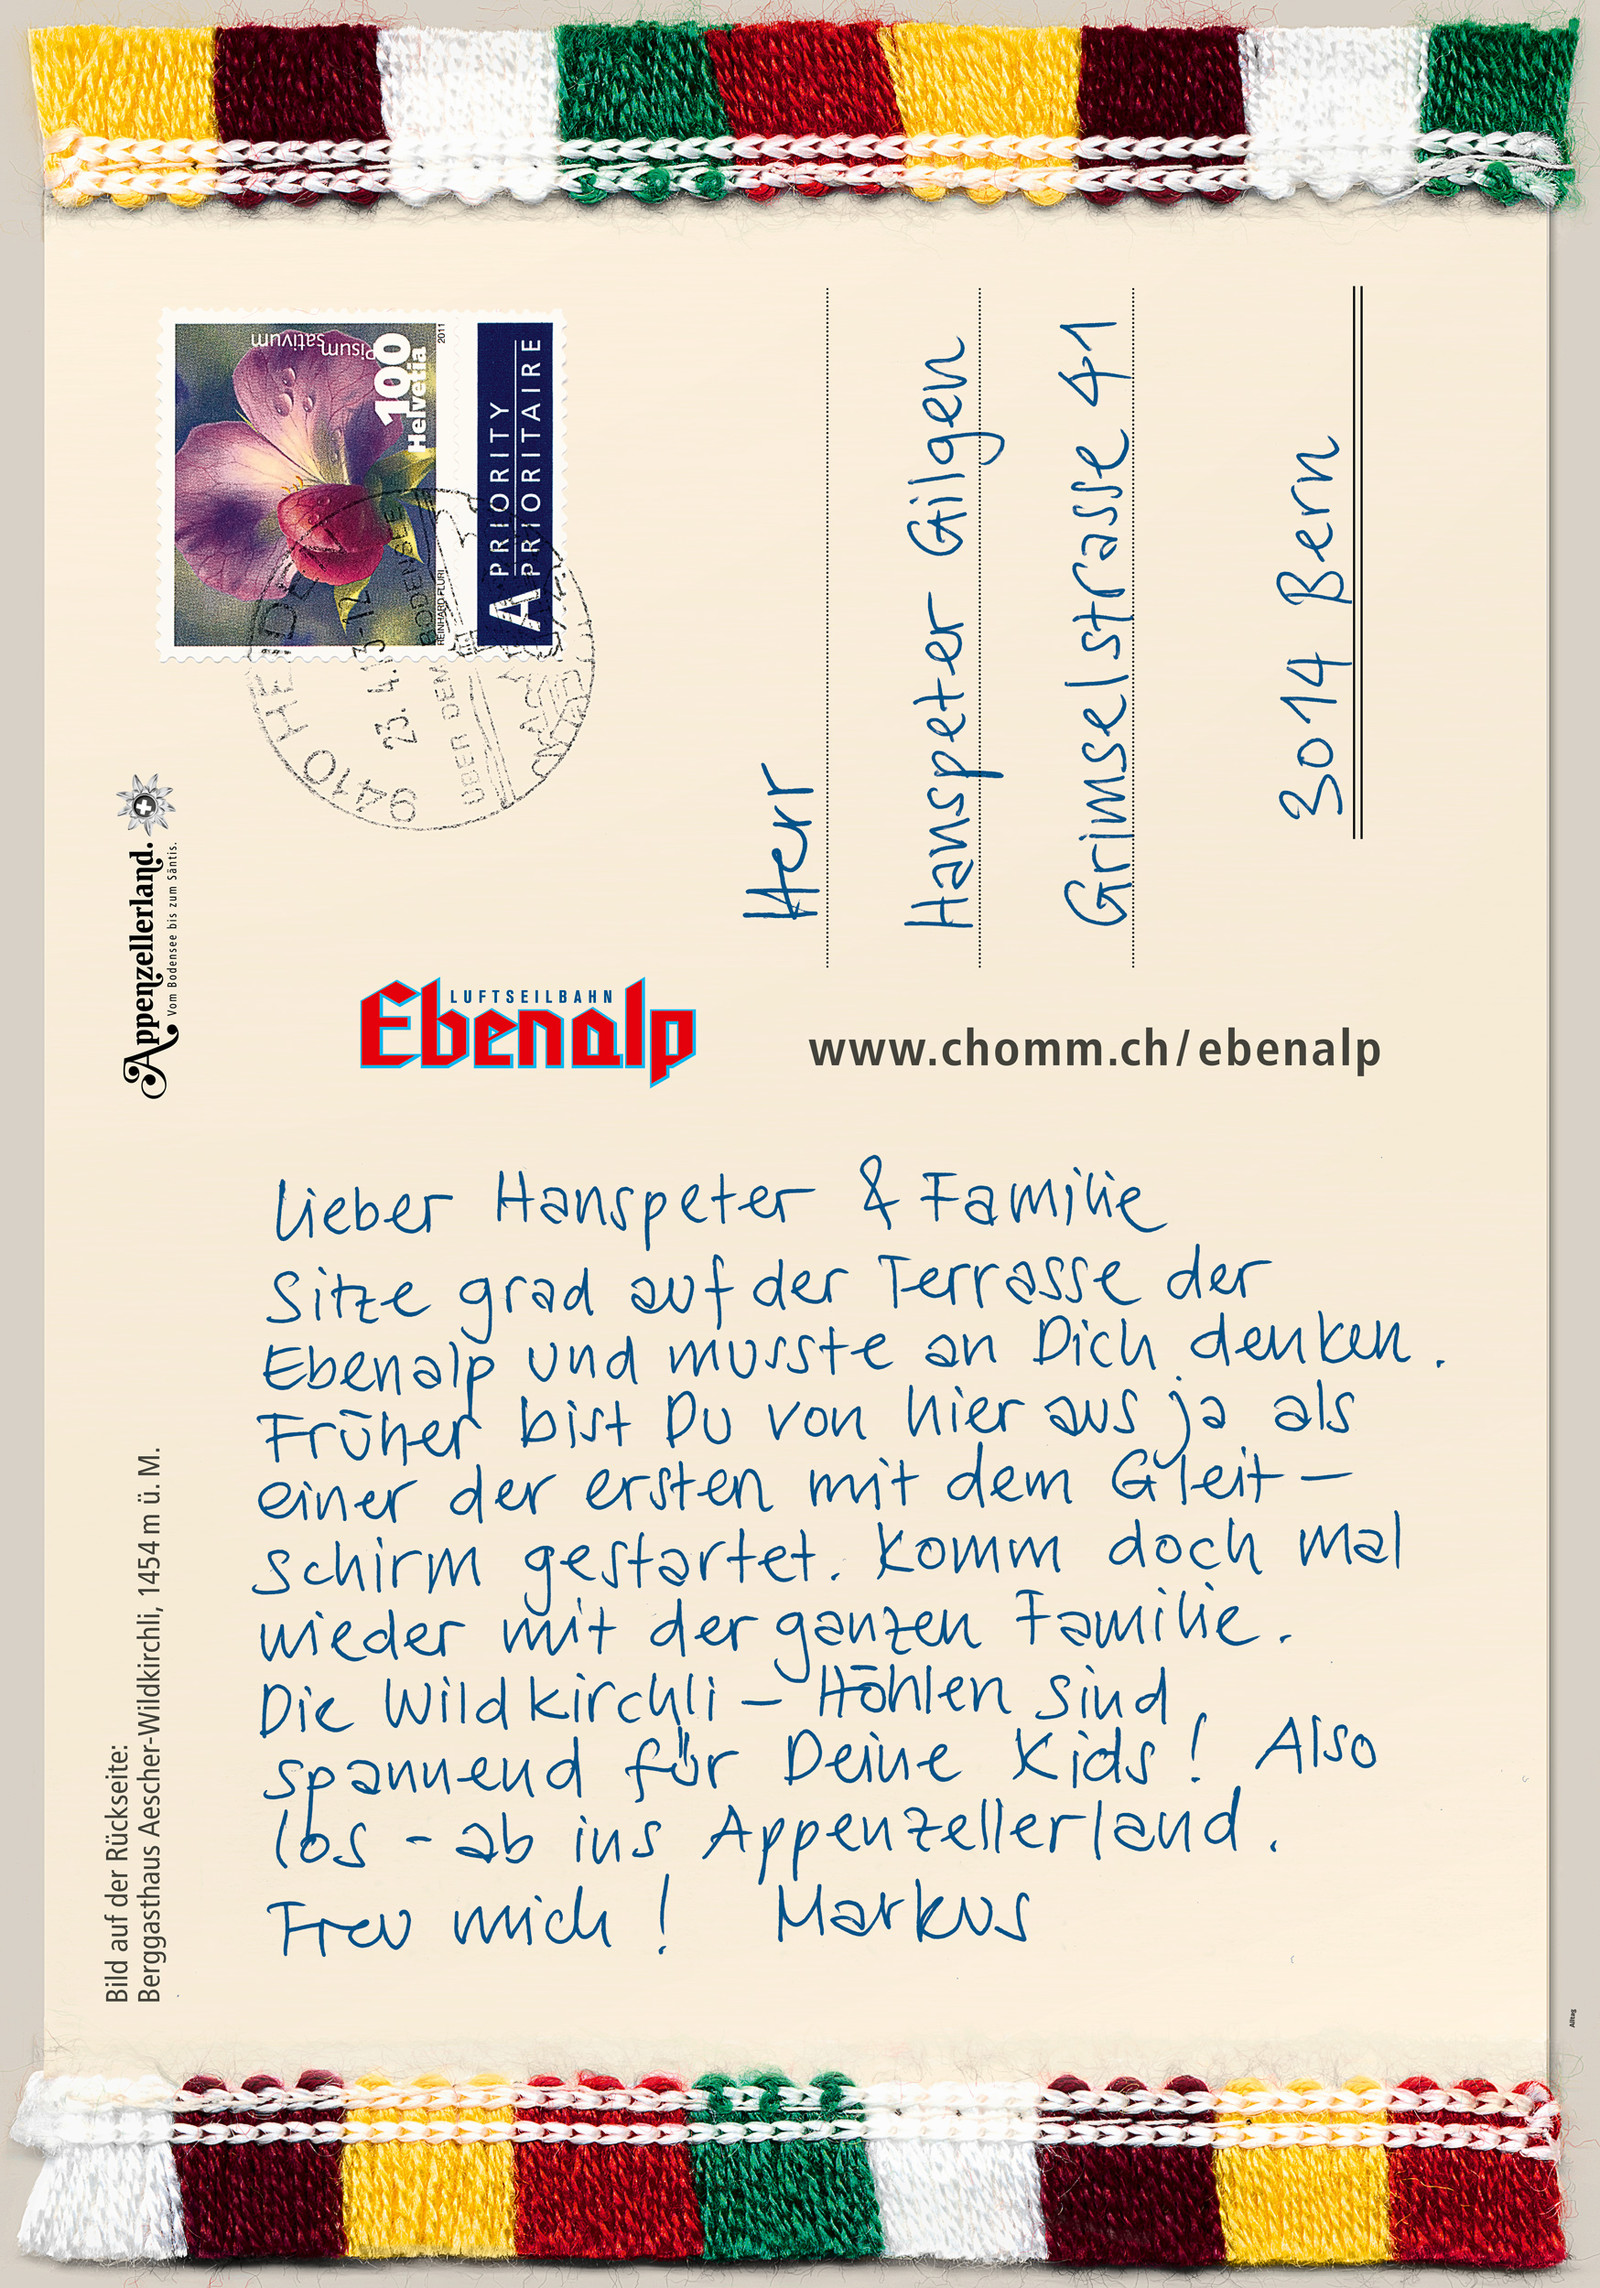 Pisum
sativum
100
Helvetia
2011
REINHARD FLURI
A PRIORITY
PRIORITAIRE
9410 HEIDEN
23. 4. 13-12
ÜBER DEM BODENSEE
Appenzellerland.
Vom Bodensee bis zum Säntis.
Herr
Hanspeter Gilgen
Grimselstrasse 41
3014 Bern
LUFTSEILBAHN
Ebenalp
www.chomm.ch/ebenalp
Lieber Hanspeter & Familie
Sitze grad auf der Terrasse der
Ebenalp und musste an Dich denken.
Früher bist Du von hier aus ja als
einer der ersten mit dem Gleit-
schirm gestartet. Komm doch mal
wieder mit der ganzen Familie.
Die Wildkirchli-Höhlen sind
spannend für Deine Kids! Also
los - ab ins Appenzellerland.
Freu mich! Markus
Bild auf der Rückseite:
Berggasthaus Aescher-Wildkirchli, 1454 m ü. M.
Alltag